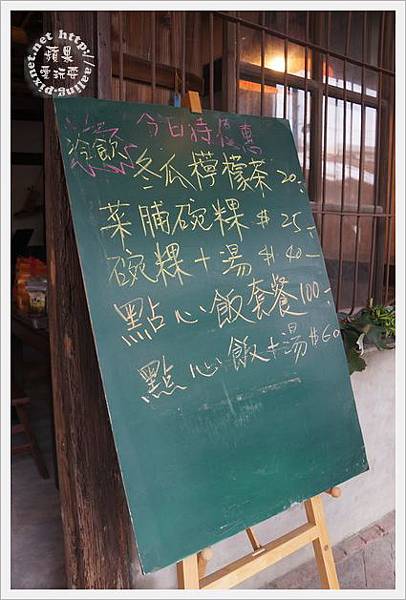 蘋果愛玩耍
http://aajing.pixnet.net
今日特優惠
冷飲 冬瓜檸檬茶 20.-
菜脯碗粿 $25-
碗粿+湯 $40-
點心飯套餐 100-
點心飯+湯 $60